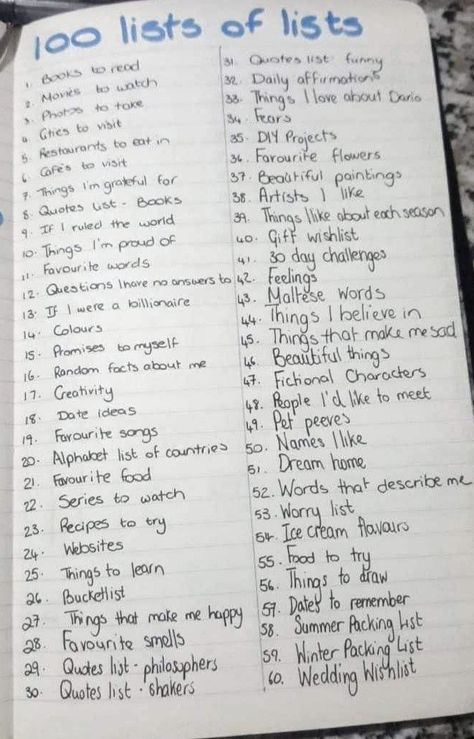 100 lists of lists
1. Books to read
2. Movies to watch
3. Photos to take
4. Cities to visit
5. Restaurants to eat in
6. Cafe's to visit
7. Things I'm grateful for
8. Quotes List - Books
9. If I ruled the world
10. Things I'm proud of
11. Favourite words
12. Questions I have no answers to
13. If I were a billionaire
14. Colours
15. Promises to myself
16. Random facts about me
17. Creativity
18. Date ideas
19. Favourite songs
20. Alphabet list of countries
21. Favourite food
22. Series to watch
23. Recipes to try
24. Websites
25. Things to learn
26. Bucketlist
27. Things that make me happy
28. Favourite smells
29. Quotes list - philosophers
30. Quotes list - shakers
31. Quotes list funny
32. Daily affirmations
33. Things I love about Dario
34. Fears
35. DIY Projects
36. Favourite flowers
37. Beautiful paintings
38. Artists I like
39. Things I like about each season
40. Gift wishlist
41. 30 day challenges
42. Feelings
43. Maltese words
44. Things I believe in
45. Things that make me sad
46. Beautiful things
47. Fictional Characters
48. People I'd like to meet
49. Pet peeves
50. Names I like
51. Dream home
52. Words that describe me
53. Worry list
54. Ice cream flavours
55. Food to try
56. Things to draw
57. Dates to remember
58. Summer Packing List
59. Winter Packing List
60. Wedding Wishlist